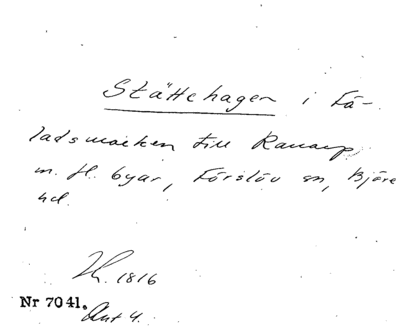 Stättehagen i Få-
ladsmarken till Ranarp
m. fl. byar, Förslöv sn, Bjäre
hd.
1816
Nr 7041.
Akt 4.